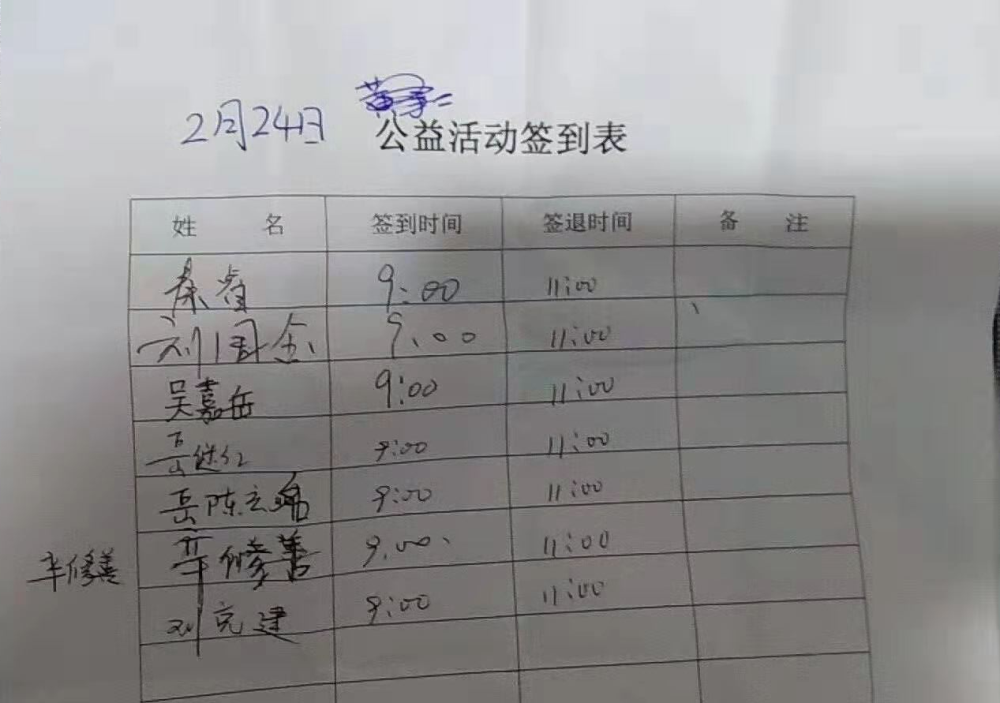 2月24日
公益活动签到表
姓 名 签到时间 签退时间 备 注
秦睿 9:00 11:00
刘国金 9:00 11:00
吴嘉岳 9:00 11:00
岳继红 9:00 11:00
岳陈立瑞 9:00 11:00
辛修善 辛修善 9:00 11:00
刘克建 9:00 11:00